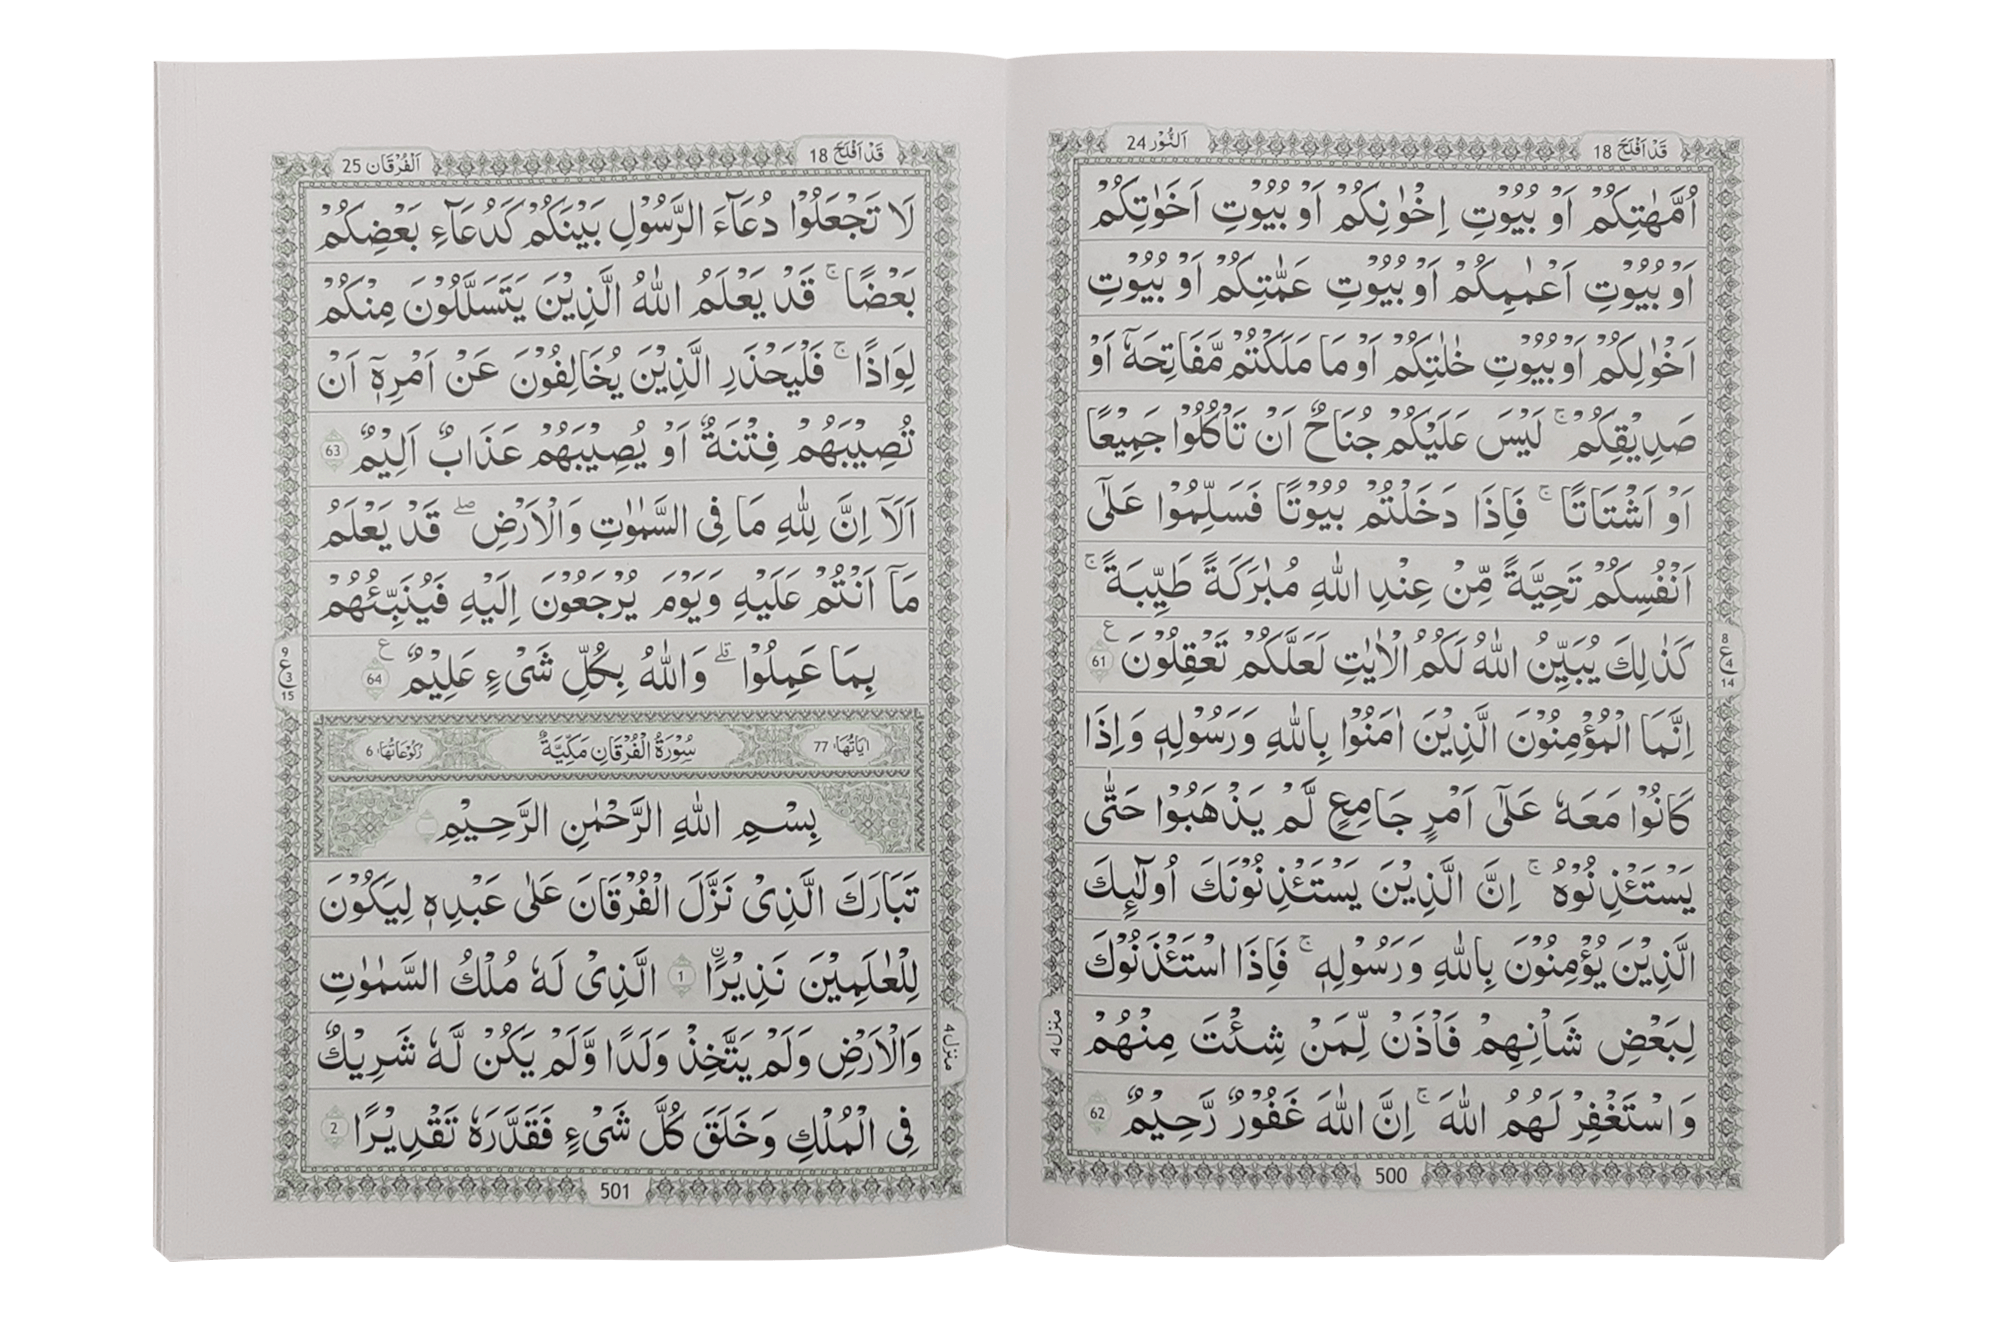 قَدْ اَفْلَحَ 18
اَلنُّوْر 24
اُمَّهٰتِكُمْ اَوْ بُيُوْتِ اِخْوَانِكُمْ اَوْ بُيُوْتِ اَخَوٰتِكُمْ
اَوْ بُيُوْتِ اَعْمَامِكُمْ اَوْ بُيُوْتِ عَمّٰتِكُمْ اَوْ بُيُوْتِ
اَخْوَالِكُمْ اَوْ بُيُوْتِ خٰلٰتِكُمْ اَوْ مَا مَلَكْتُمْ مَّفَاتِحَهٗۤ اَوْ
صَدِيْقِكُمْ ۚ لَيْسَ عَلَيْكُمْ جُنَاحٌ اَنْ تَاْكُلُوْا جَمِيْعًا
اَوْ اَشْتَاتًا ۚ فَاِذَا دَخَلْتُمْ بُيُوْتًا فَسَلِّمُوْا عَلٰۤى
اَنْفُسِكُمْ تَحِيَّةً مِّنْ عِنْدِ اللّٰهِ مُبٰرَكَةً طَيِّبَةً ۚ
كَذٰلِكَ يُبَيِّنُ اللّٰهُ لَكُمُ الْاٰيٰتِ لَعَلَّكُمْ تَعْقِلُوْنَ ع 61
8 ع 4 14
اِنَّمَا الْمُؤْمِنُوْنَ الَّذِيْنَ اٰمَنُوْا بِاللّٰهِ وَرَسُوْلِهٖ وَاِذَا
كَانُوْا مَعَهٗ عَلٰۤى اَمْرٍ جَامِعٍ لَّمْ يَذْهَبُوْا حَتّٰى
يَسْتَئْذِنُوْهُ ۚ اِنَّ الَّذِيْنَ يَسْتَئْذِنُوْنَكَ اُولٰٓئِكَ
الَّذِيْنَ يُؤْمِنُوْنَ بِاللّٰهِ وَرَسُوْلِهٖ ۚ فَاِذَا اسْتَئْذَنُوْكَ
لِبَعْضِ شَاْنِهِمْ فَاْذَنْ لِّمَنْ شِئْتَ مِنْهُمْ
منزل 4
وَاسْتَغْفِرْ لَهُمُ اللّٰهَ ۚ اِنَّ اللّٰهَ غَفُوْرٌ رَّحِيْمٌ 62
500
قَدْ اَفْلَحَ 18
اَلْفُرْقَان 25
لَا تَجْعَلُوْا دُعَآءَ الرَّسُوْلِ بَيْنَكُمْ كَدُعَآءِ بَعْضِكُمْ
بَعْضًا ۚ قَدْ يَعْلَمُ اللّٰهُ الَّذِيْنَ يَتَسَلَّلُوْنَ مِنْكُمْ
لِوَاذًا ۚ فَلْيَحْذَرِ الَّذِيْنَ يُخَالِفُوْنَ عَنْ اَمْرِهٖۤ اَنْ
تُصِيْبَهُمْ فِتْنَةٌ اَوْ يُصِيْبَهُمْ عَذَابٌ اَلِيْمٌ 63
اَلَاۤ اِنَّ لِلّٰهِ مَا فِى السَّمٰوٰتِ وَالْاَرْضِ ۖ قَدْ يَعْلَمُ
مَاۤ اَنْتُمْ عَلَيْهِ وَيَوْمَ يُرْجَعُوْنَ اِلَيْهِ فَيُنَبِّئُهُمْ
بِمَا عَمِلُوْا ۗ وَاللّٰهُ بِكُلِّ شَىْءٍ عَلِيْمٌ ع 64
9 ع 3 15
اٰيَاتُهَا، 77
سُوْرَةُ الْفُرْقَانِ مَكِّيَّةٌ
رُكُوْعَاتُهَا، 6
بِسْمِ اللّٰهِ الرَّحْمٰنِ الرَّحِيْمِ
تَبَارَكَ الَّذِىْ نَزَّلَ الْفُرْقَانَ عَلٰى عَبْدِهٖ لِيَكُوْنَ
لِلْعٰلَمِيْنَ نَذِيْرًا ۙ 1 الَّذِىْ لَهٗ مُلْكُ السَّمٰوٰتِ
وَالْاَرْضِ وَلَمْ يَتَّخِذْ وَلَدًا وَّلَمْ يَكُنْ لَّهٗ شَرِيْكٌ
منزل 4
فِى الْمُلْكِ وَخَلَقَ كُلَّ شَىْءٍ فَقَدَّرَهٗ تَقْدِيْرًا 2
501